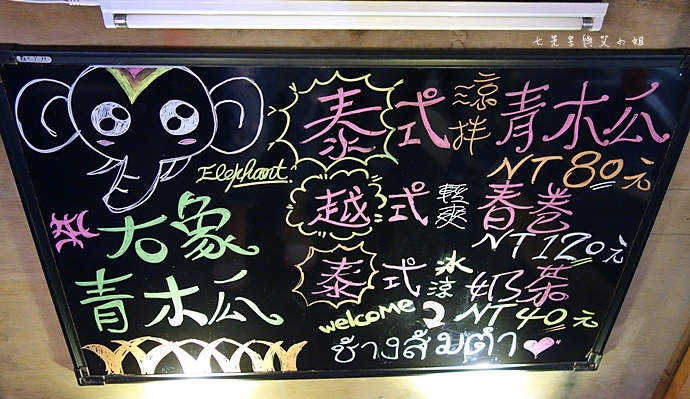 七先生與艾小姐
Elephant
大象
青木瓜
泰式涼拌青木瓜
NT 80元
越式輕爽春卷
NT 120元
泰式冰涼奶茶
welcome 2 NT 40元
ช้างส้มตำ